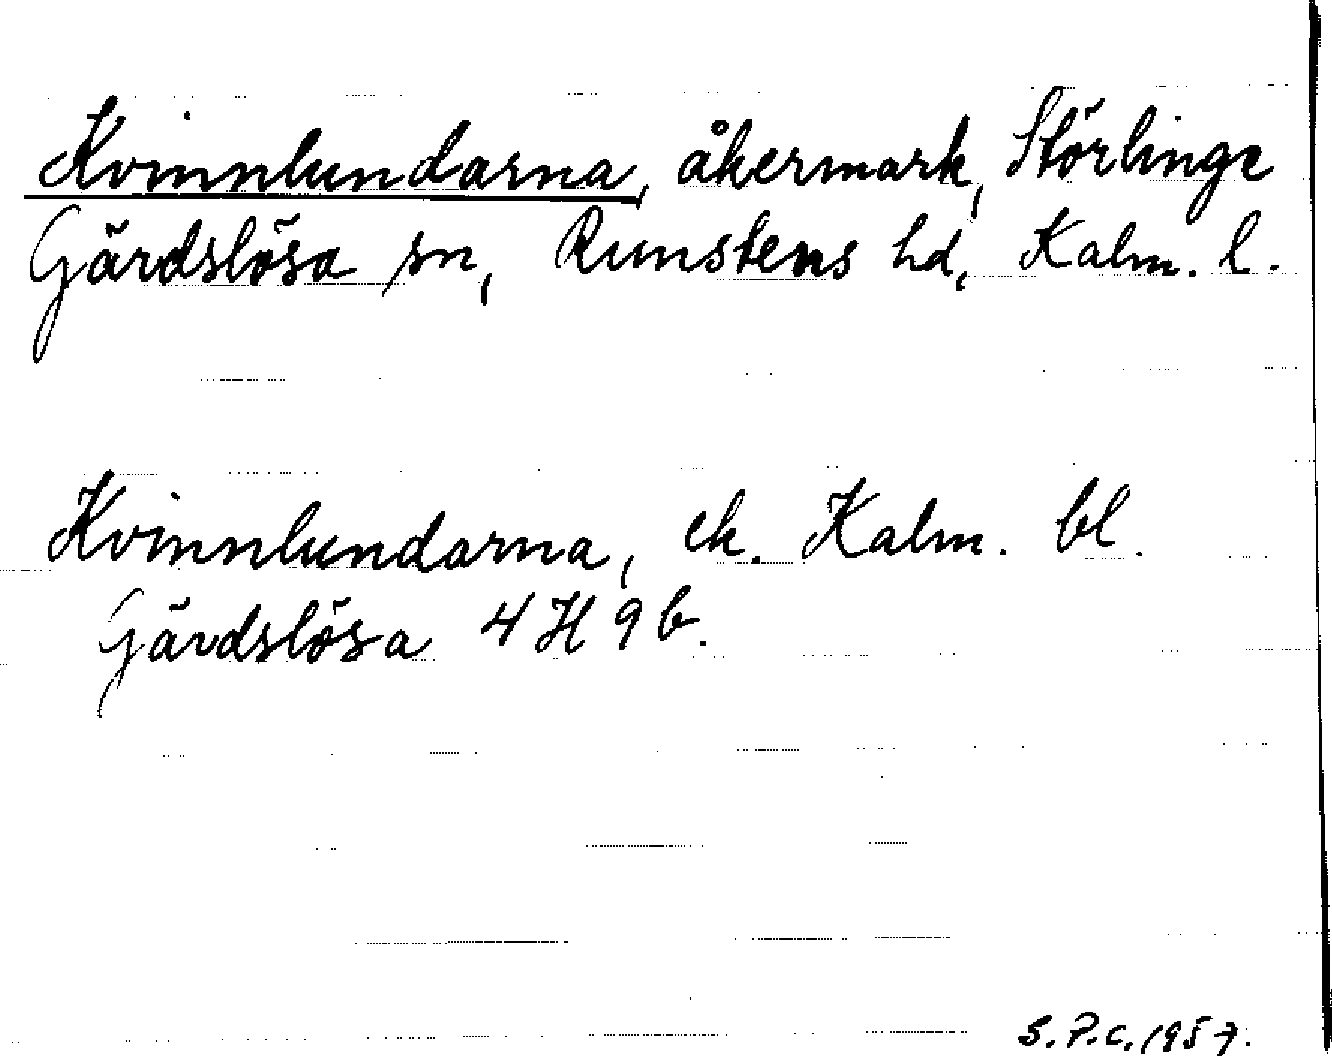 Kvinnlundarna, åkermark, Störlinge
Gärdslösa sn, Runstens hd, Kalm. l.
Kvinnlundarna, ek. Kalm. bl.
Gärdslösa 4H9b.
S.P.C. 1957.